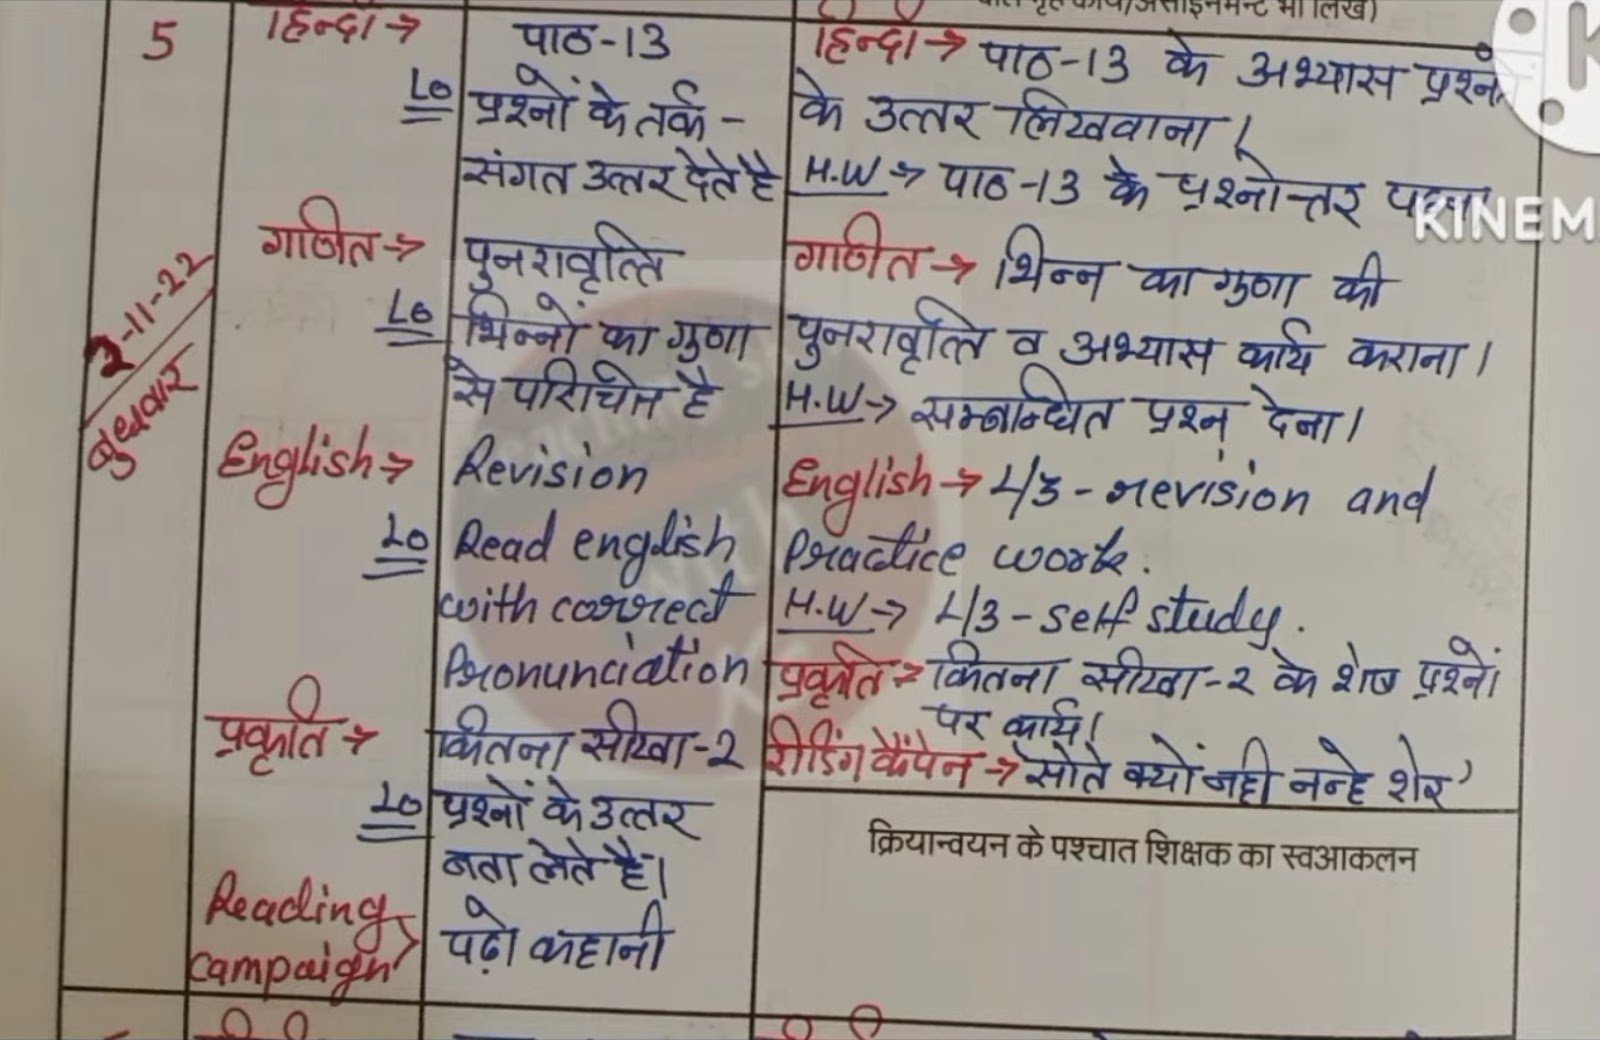 5
हिन्दी →
पाठ-13
LO प्रश्नों के तर्क-
संगत उत्तर देते है
हिन्दी → पाठ-13 के अभ्यास प्रश्नों
के उत्तर लिखवाना।
H.W → पाठ-13 के प्रश्नोत्तर
KINEM
-11-22
बुधवार
गणित →
पुनरावृत्ति
LO भिन्नों का गुणा
से परिचित है
गणित → भिन्न का गुणा की
पुनरावृत्ति व अभ्यास कार्य कराना।
H.W → सम्बन्धित प्रश्न देना।
English →
Revision
LO Read english
with correct
Pronunciation
English → L/3 - revision and
Practice work.
H.W → L/3 - self study.
प्रकृति →
कितना सीखा-2
LO प्रश्नों के उत्तर
बता लेते है।
प्रकृति → कितना सीखा-2 के शेष प्रश्नों
पर कार्य।
Reading
campaign
पढ़ो कहानी
रीडिंग कैंपेन → सोते क्यों नही नन्हे शेर'
क्रियान्वयन के पश्चात शिक्षक का स्वआकलन